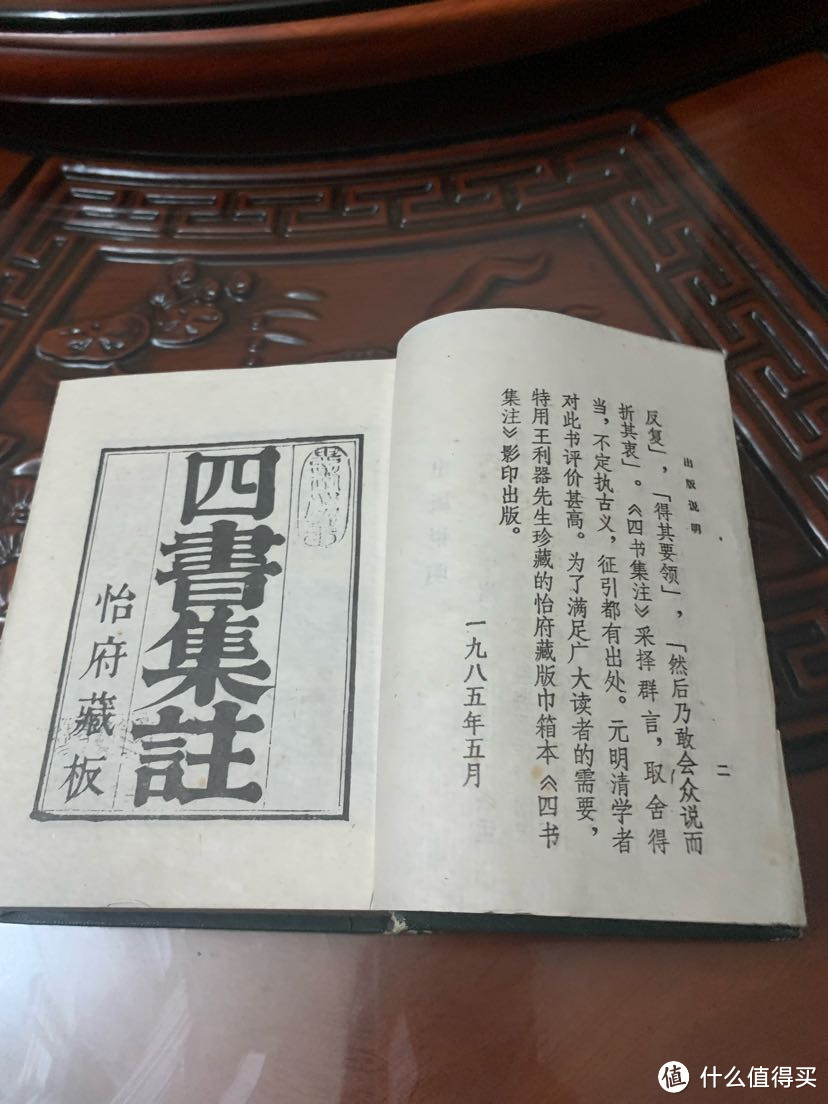 出版说明
二
反复」，「得其要领」，「然后乃敢会众说而
折其衷」。《四书集注》采择群言，取舍得
当，不定执古义，征引都有出处。元明清学者
对此书评价甚高。为了满足广大读者的需要，
特用王利器先生珍藏的怡府藏版巾箱本《四书
集注》影印出版。
一九八五年五月
四書集註
怡府藏板
值 什么值得买